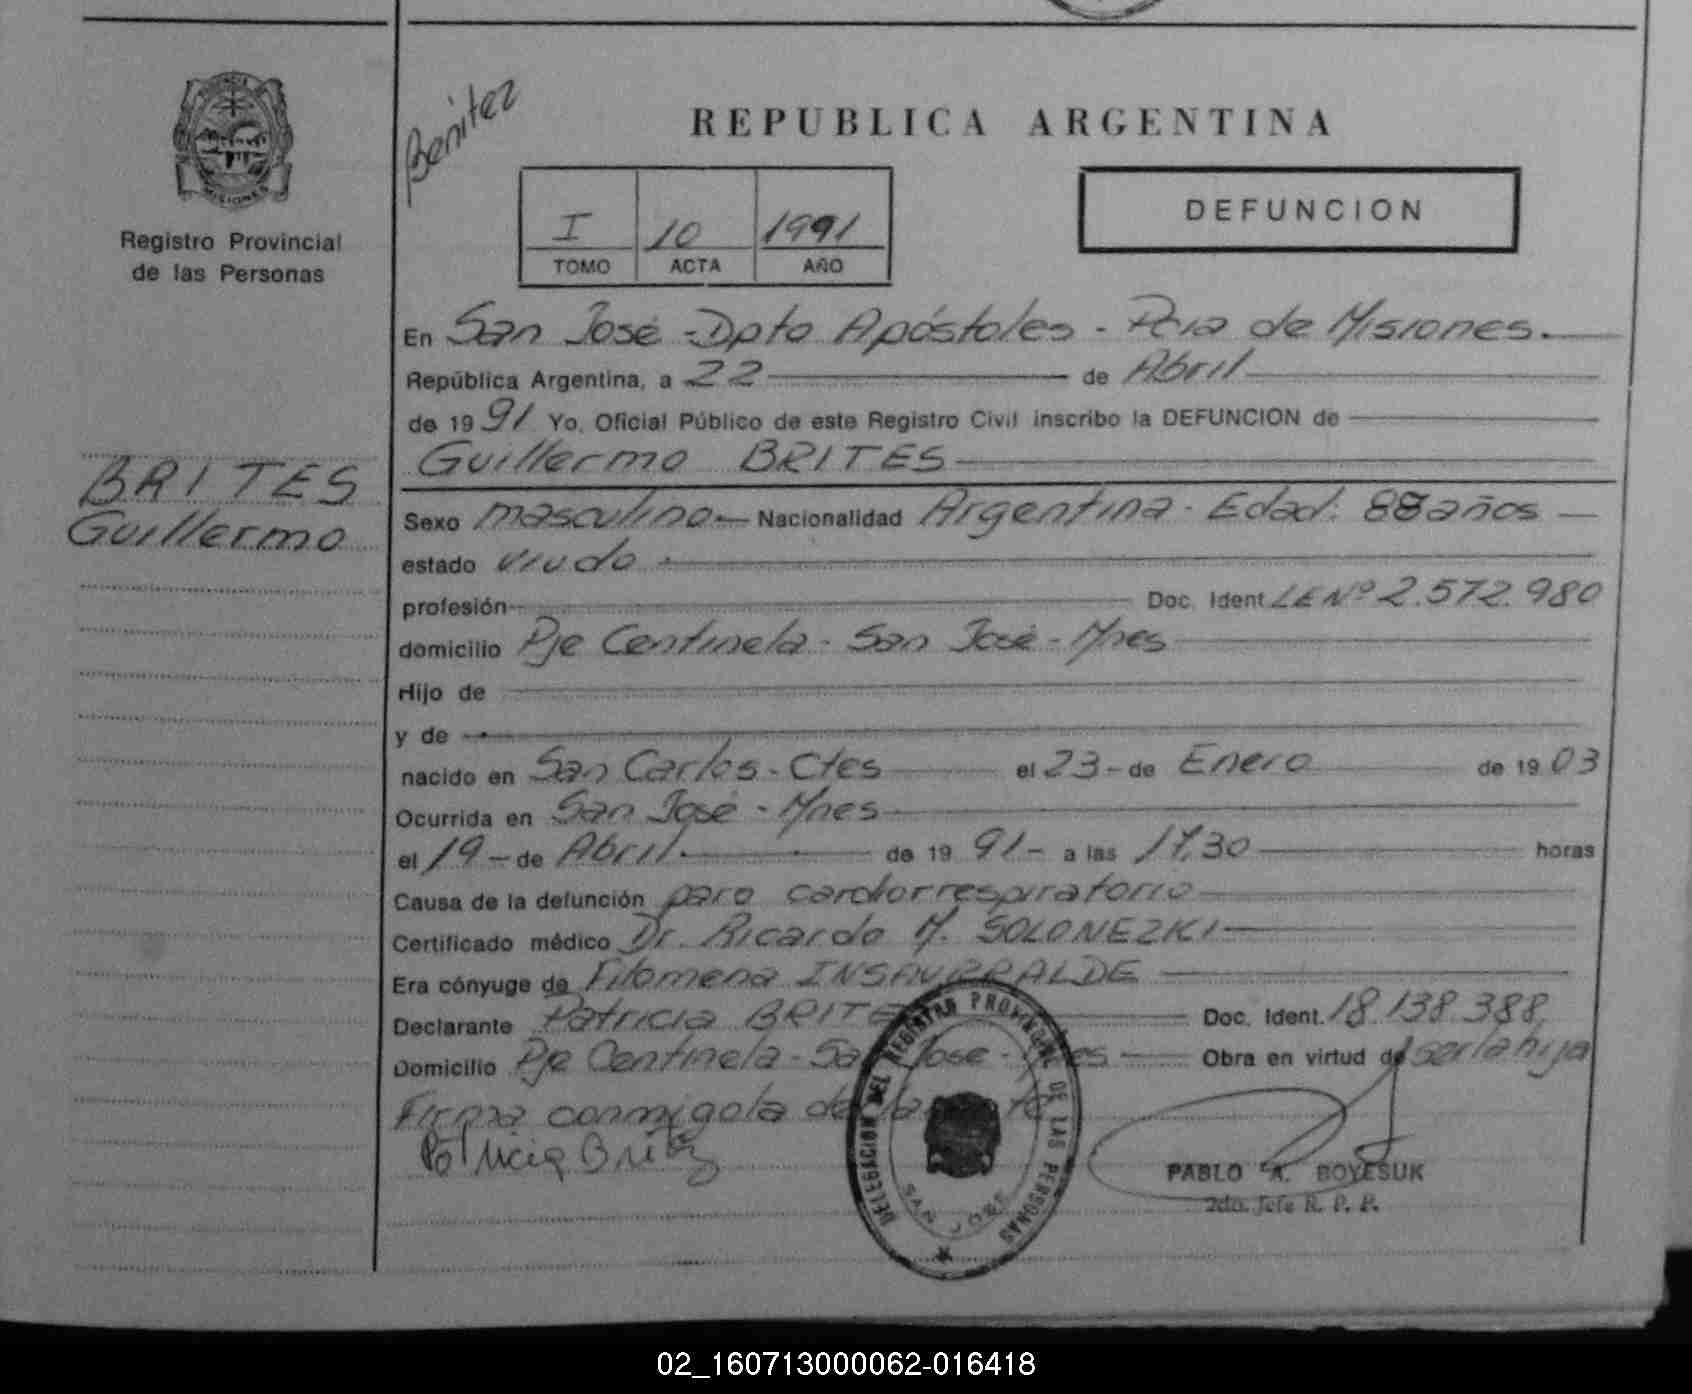 PROVINCIA
MISIONES
Registro Provincial
de las Personas
BRITES
Guillermo
Benitez
REPUBLICA ARGENTINA
I 10 1991
TOMO ACTA AÑO
DEFUNCION
En San José - Dpto Apóstoles - Pcia de Misiones.
República Argentina, a 22 de Abril
de 1991 Yo, Oficial Público de este Registro Civil inscribo la DEFUNCION de
Guillermo BRITES
Sexo masculino Nacionalidad Argentina - Edad: 88 años
estado viudo
profesión Doc. Ident LE Nº 2.572.980
domicilio Pje Centinela - San José - Mnes
Hijo de
y de
nacido en San Carlos - Ctes el 23 - de Enero de 1903
Ocurrida en San José - Mnes
el 19 - de Abril de 1991 - a las 17,30 horas
Causa de la defunción paro cardiorrespiratorio
Certificado médico Dr. Ricardo M. SOLONEZKI
Era cónyuge de Filomena INSAURRALDE
Declarante Patricia BRITES Doc. Ident. 18.138.388
Domicilio Pje Centinela - San José - Mnes Obra en virtud de ser la hija
Firma conmigo la declarante
Patricia Britez
DELEGACION DEL REGISTRO PROVINCIAL DE LAS PERSONAS
SAN JOSE
PABLO A. BOYESUK
2do. Jefe R. P. P.
02_160713000062-016418